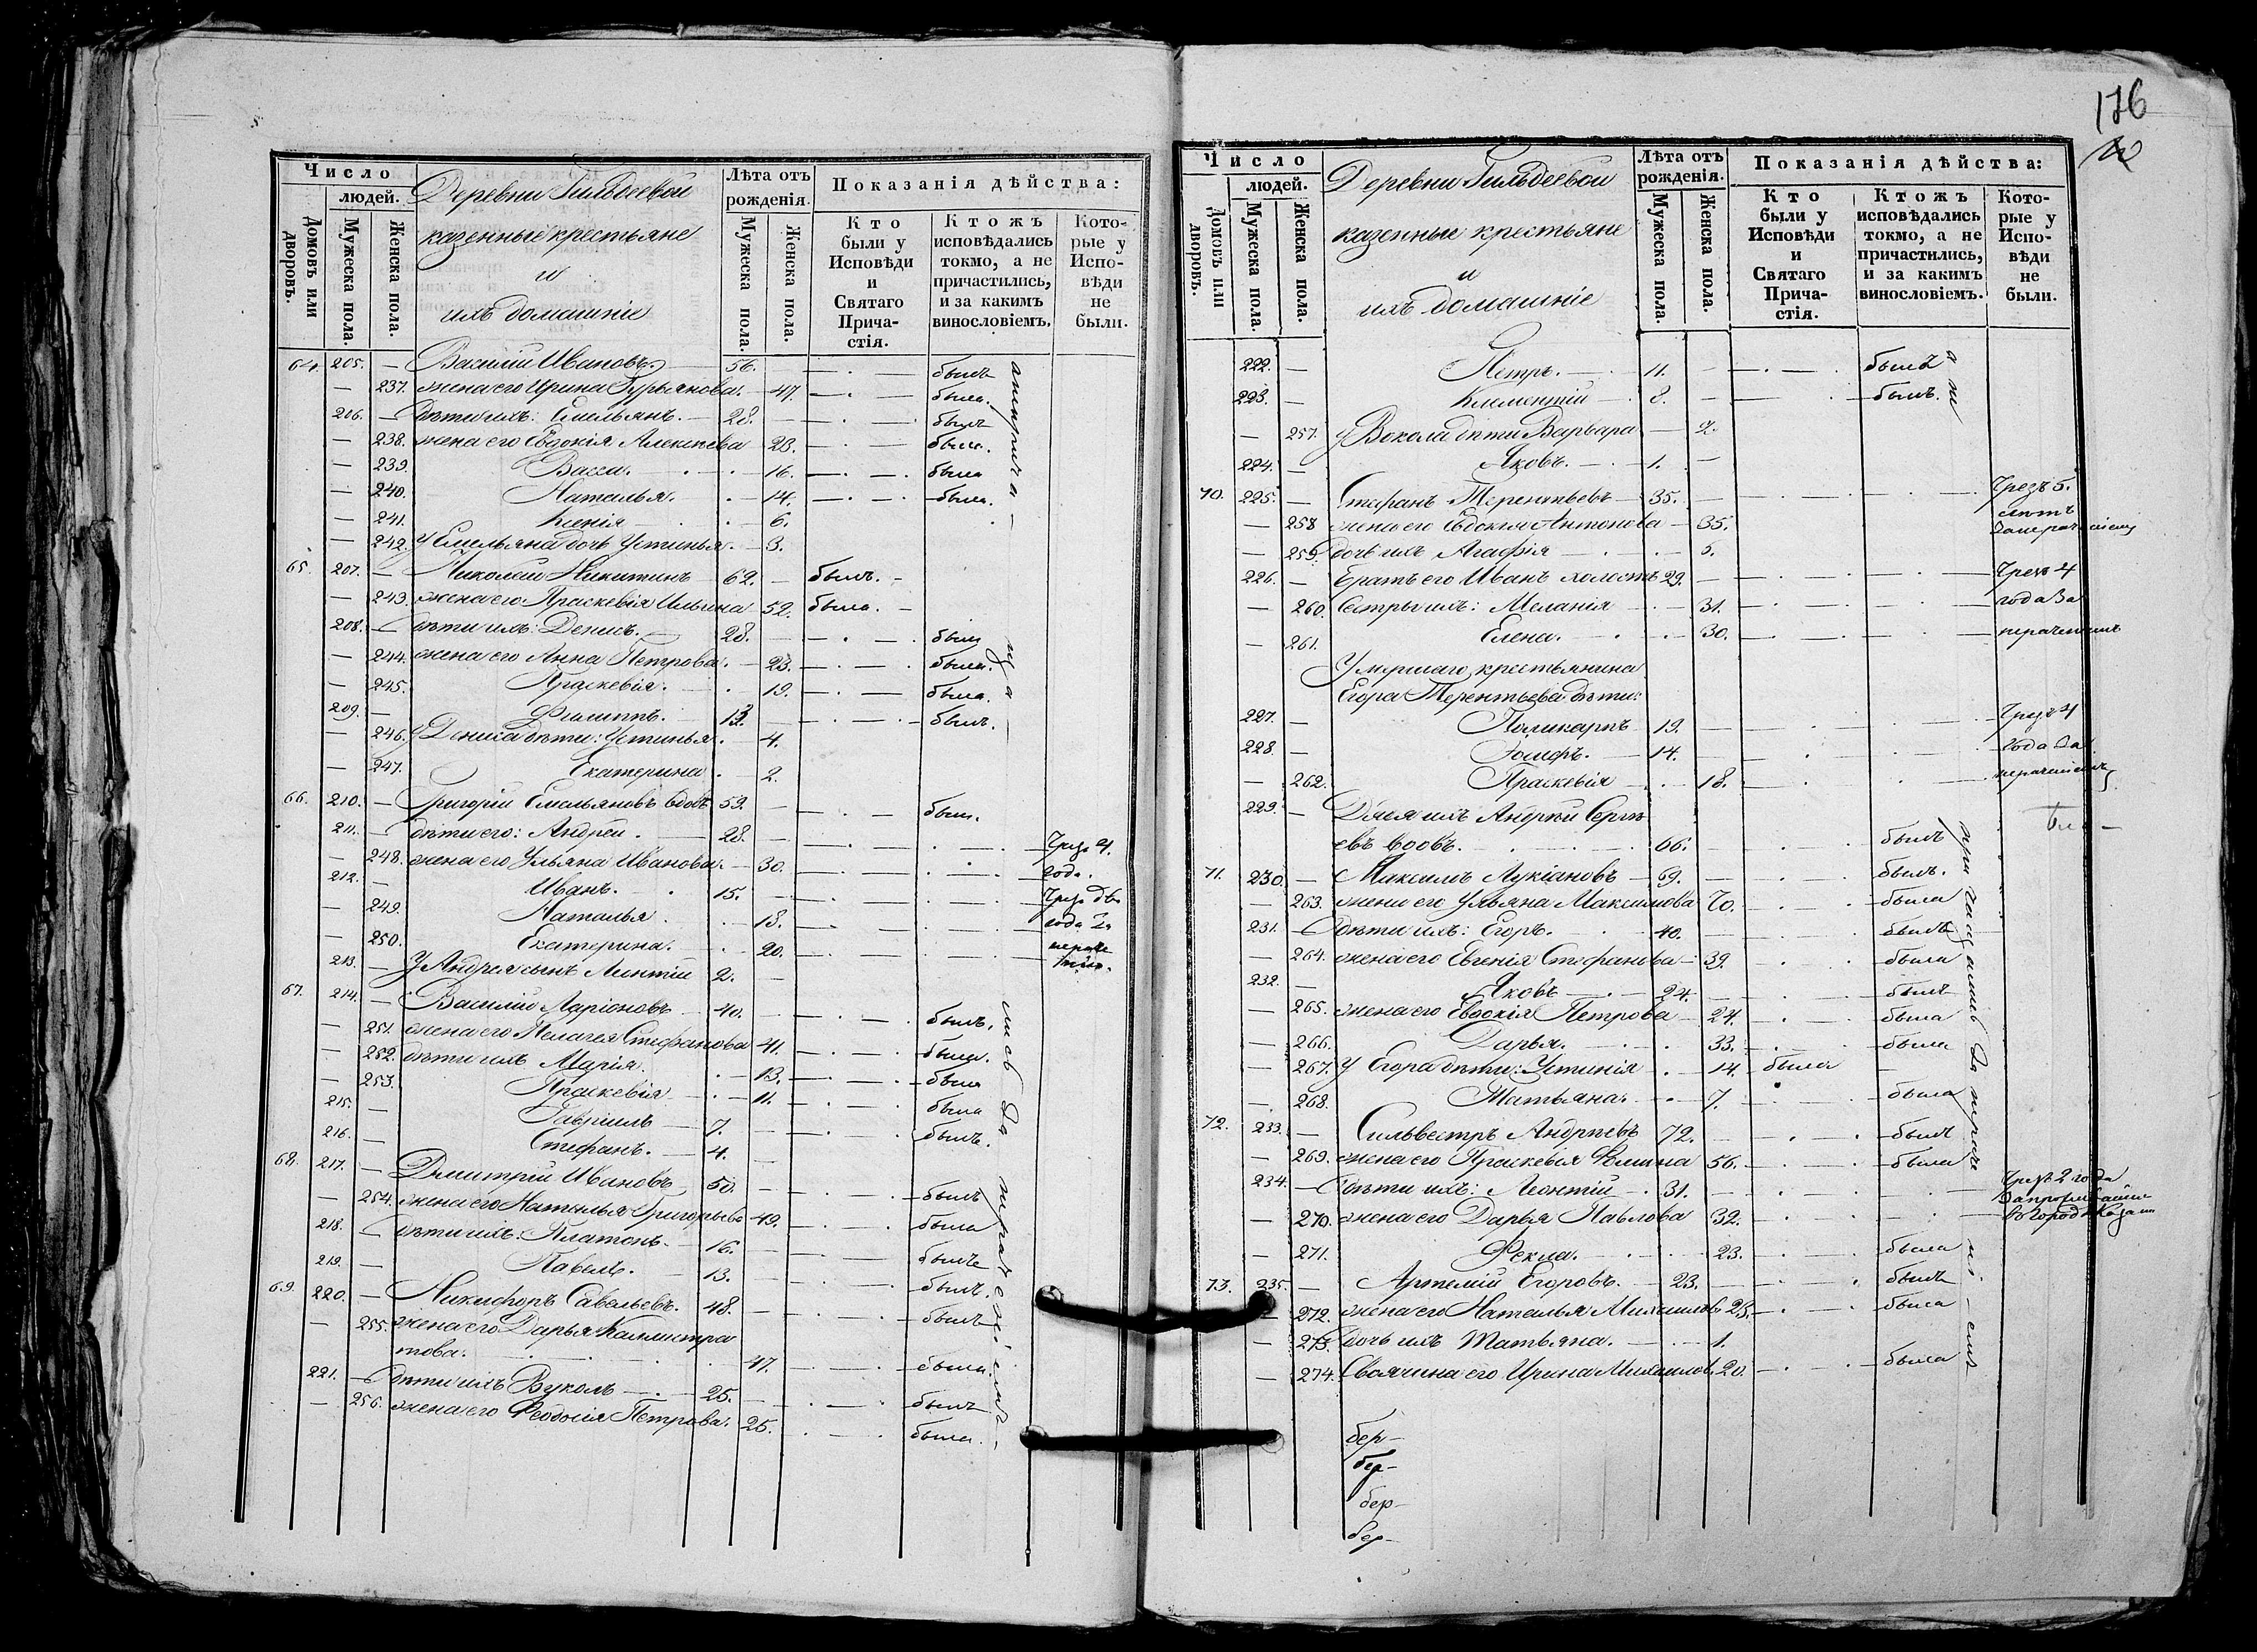 Число
людей.
Домовъ или дворовъ.
Мужеска пола.
Женска пола.
Деревни Гильдеевой
казенные крестьяне
и
ихъ домашніе
Лѣта отъ рожденія.
Мужеска пола.
Женска пола.
Показанія дѣйства:
Кто были у Исповѣди и Святаго Причастія.
Ктожъ исповѣдались токмо, а не причастились, и за какимъ винословіемъ.
Которые у Исповѣди не были.
64. 205. — Василій Ивановъ. 56. былъ
— 237. жена его Ирина Гурьянова. — 47. была.
206. — дѣти ихъ: Емельянъ. — 28. былъ
— 238. жена его Евдокія Алексѣева 23. была.
— 239. Васса. — 16. была
— 240. Наталья. — 14. была.
— 241. Ксенія — 6.
— 242. У Емельяна дочь Устинья. — 3.
65. 207. — Николай Никитинъ 62. — былъ. —
— 243. жена его Праскевія Ильина 52. была. —
208. — дѣти ихъ: Денисъ. — 28. — былъ
— 244. жена его Анна Петрова. — 23. была.
— 245. Праскевія. — 19. была.
209. — Филиппъ. 13. — былъ.
— 246. У Дениса дѣти: Устинья. — 4.
— 247. Екатерина — 2.
66. 210. — Григорій Емельяновъ вдовъ 59. — былъ.
211. — дѣти его: Андрей. — 28. — Чрезъ 4.
— 248. жена его Ульяна Иванова. — 30. года.
212. — Иванъ. 15. — Чрезъ два
— 249. Наталья. — 18. года За
— 250. Екатерина. — 20.
213. — У Андрея сынъ Леонтій 2. —
67. 214. — Василій Ларіоновъ 40. — былъ.
— 251. жена его Пелагея Стефанова 41. была.
— 252. дѣти ихъ Марія. — 13. была
— 253. Праскевія — 11. была
215. — Гавріилъ — 7. — былъ.
216. — Стефанъ. — 4. —
68. 217. — Дмитрій Ивановъ 50. — былъ
— 254. жена его Наталья Григорьева 49. была
218. — дѣти ихъ: Платонъ. — 16. — былъ
219. — Павелъ. 13. — былъ.
69. 220. — Никифоръ Савельевъ. 48. — былъ
— 255. жена его Дарья Каллистра
това. 47. была.
221. — дѣти ихъ Вуколъ — 25. — былъ
— 256. жена его Феодосія Петрова. 25. была.
а не прича —
ща —
лись за нераченіемъ —
176
Число
людей.
Домовъ или дворовъ.
Мужеска пола.
Женска пола.
Деревни Гильдеевой
казенные крестьяне
и
ихъ домашніе
Лѣта отъ рожденія.
Мужеска пола.
Женска пола.
Показанія дѣйства:
Кто были у Исповѣди и Святаго Причастія.
Ктожъ исповѣдались токмо, а не причастились, и за какимъ винословіемъ.
Которые у Исповѣди не были.
222. — Петръ. — 11. — былъ
223. — Климентій — 8. — былъ.
— 257. У Вокола дѣти Варвара — 2.
224. — Яковъ. — 1. —
70. 225. — Стефанъ Терентьевъ — 35. — Чрезъ 5.
лѣтъ
— 258 жена его Евдокія Антонова — 35. За нераченіемъ
— 259. дочь ихъ Агафія — 5.
226. — Братъ его Иванъ холостъ 29. — Чрезъ 4
— 260. Сестры ихъ: Меланія — 31. года За
— 261. Елена. — 30. нераченіемъ
Умершаго крестьянина
Егора Терентьева дѣти:
227. — Поликарпъ 19. — Чрезъ 4
228. — Іосифъ. — 14. года За
— 262. Праскевія — 18. нераченіемъ
229. — Дядя ихъ Андрей Серге
евъ вдовъ. 66. — былъ
71. 230. — Максимъ Лукіановъ — 69. — былъ.
— 263. жена его Ульяна Максимова 70. была
231. — дѣти ихъ: Егоръ. 40. — былъ
— 264. жена его Евгенія Стефанова — 39. была
232. — Яковъ — 24. — былъ
— 265. жена его Евдокія Петрова — 24. была
— 266. Дарья. 33. была
— 267. У Егора дѣти: Устинія — 14. была —
— 268. Татьяна. — 7. была
72. 233. — Сильвестръ Андреевъ 72. — былъ
— 269. жена его Праскевія Фомина 56. была
234. — дѣти ихъ: Леонтій — 31. — Чрезъ 2 года
За проживаніем
— 270. жена его Дарья Павлова 32. въ городѣ Казани
— 271. Фекла. — 23. была
73. 235. — Артемій Егоровъ. — 23. — былъ
— 272. жена его Наталья Михаилов. 25. была
— 273. дочь ихъ Татьяна. — 1.
— 274. Своячина его Ирина Михаилов. 20. была
а не
причащались за нераче
ні — емъ
бер—
бер—
бер—
бер—